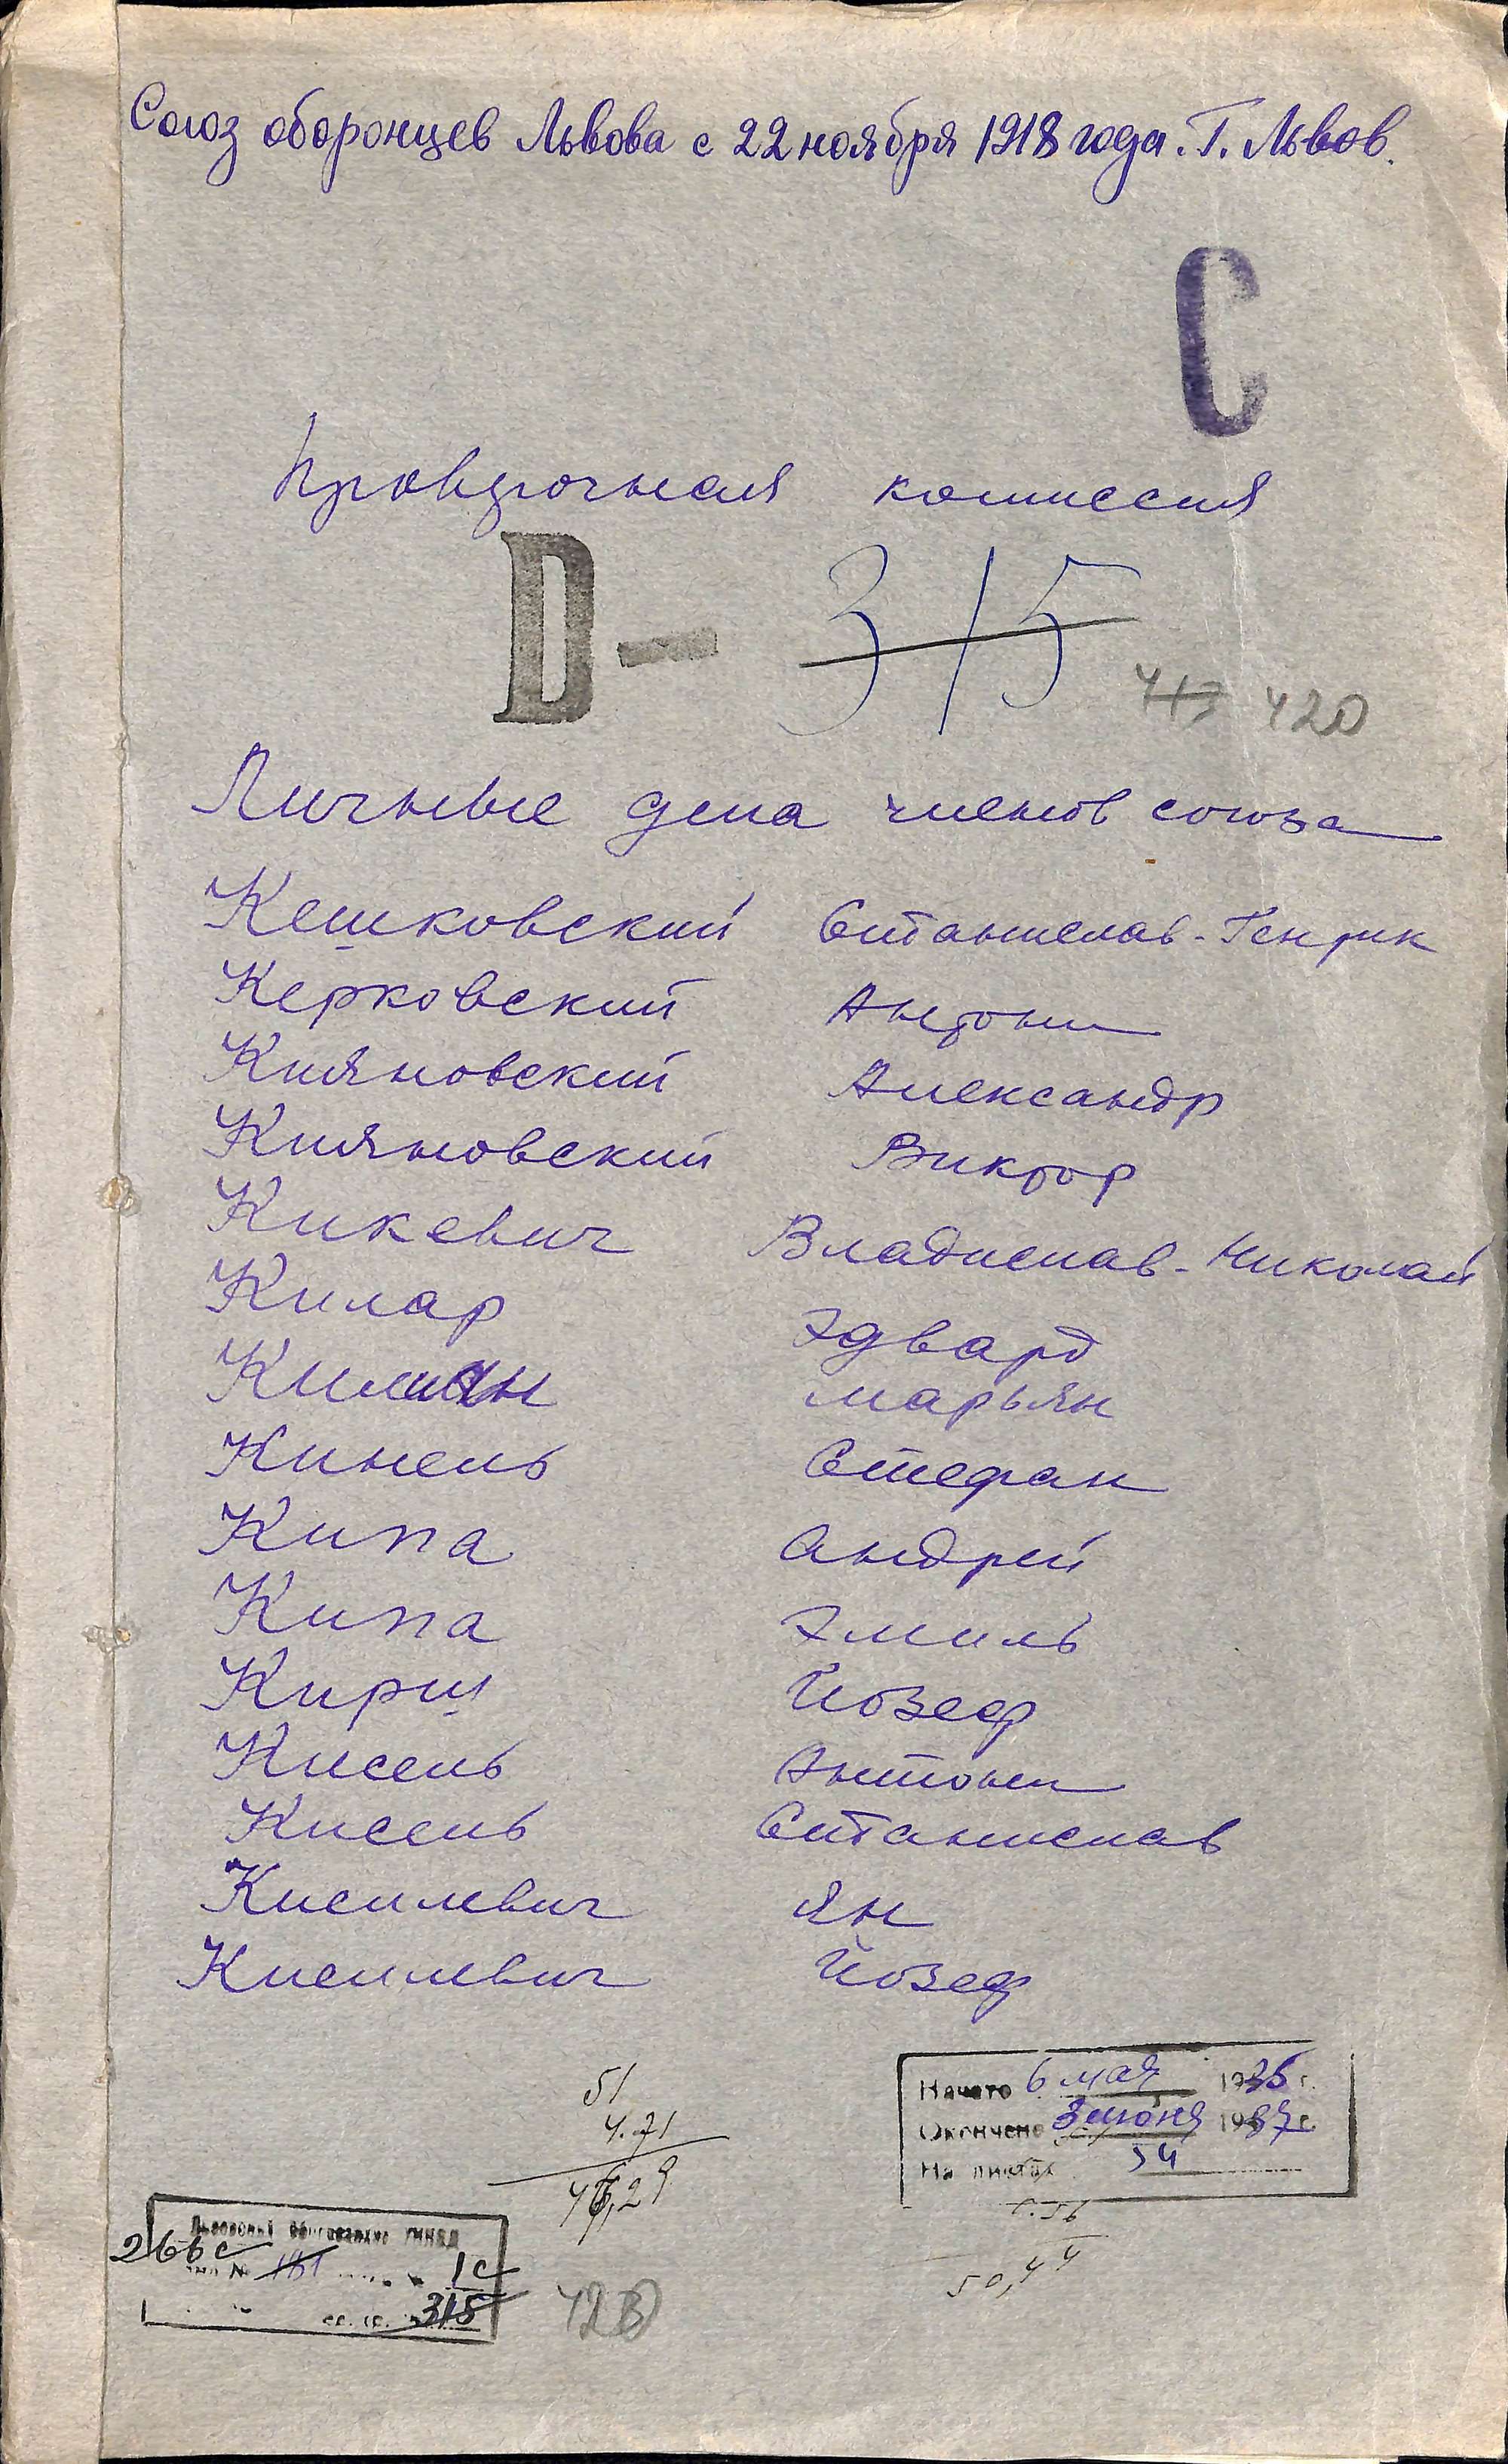 Союз оборонцев Львова с 22 ноября 1918 года. Г. Львов.
С
Проверочная комиссия
D - 315
413 420
Личные дела членов союза
Кешковский Станислав-Генрик
Керковский Антони
Кияновский Александр
Кияновский Виктор
Кикевич Владислав-Николай
Килар Эдвард
Килиан Марьян
Кинель Стефан
Кипа Андрей
Кипа Эмиль
Кирш Йозеф
Кисель Антони
Кисель Станислав
Кисилевич Ян
Кисилевич Йозеф
51
4.71
46,29
Начато 6 мая 1936 г.
Окончено 3 июня 1937 г.
На листах 54
50,44
266с
№ 161 1с
315
420